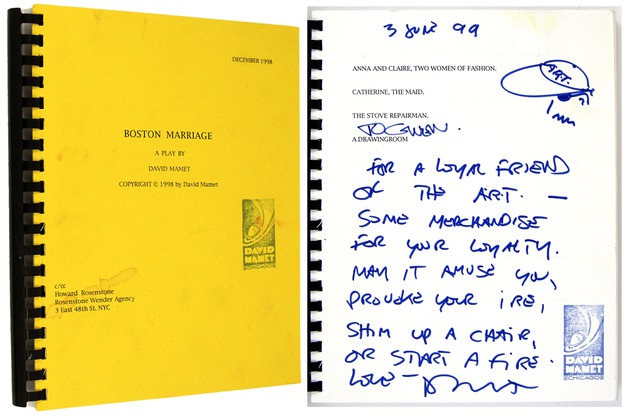 DECEMBER 1998
BOSTON MARRIAGE
A PLAY BY
DAVID MAMET
COPYRIGHT © 1998 by David Mamet
DAVID
MAMET
CHICAGO
c/o:
Howard Rosenstone
Rosenstone Wender Agency
3 East 48th St. NYC
3 JUNE 99
ANNA AND CLAIRE, TWO WOMEN OF FASHION.
CATHERINE, THE MAID.
THE STOVE REPAIRMAN.
TO GWEN.
A DRAWINGROOM
A.R.T.
FOR A LOYAL FRIEND
OF THE ART. —
SOME MERCHANDISE
FOR YOUR LOYALTY.
MAY IT AMUSE YOU,
PROVOKE YOUR IRE,
SHIM UP A CHAIR,
OR START A FIRE.
LOVE —
DAVID
MAMET
CHICAGO